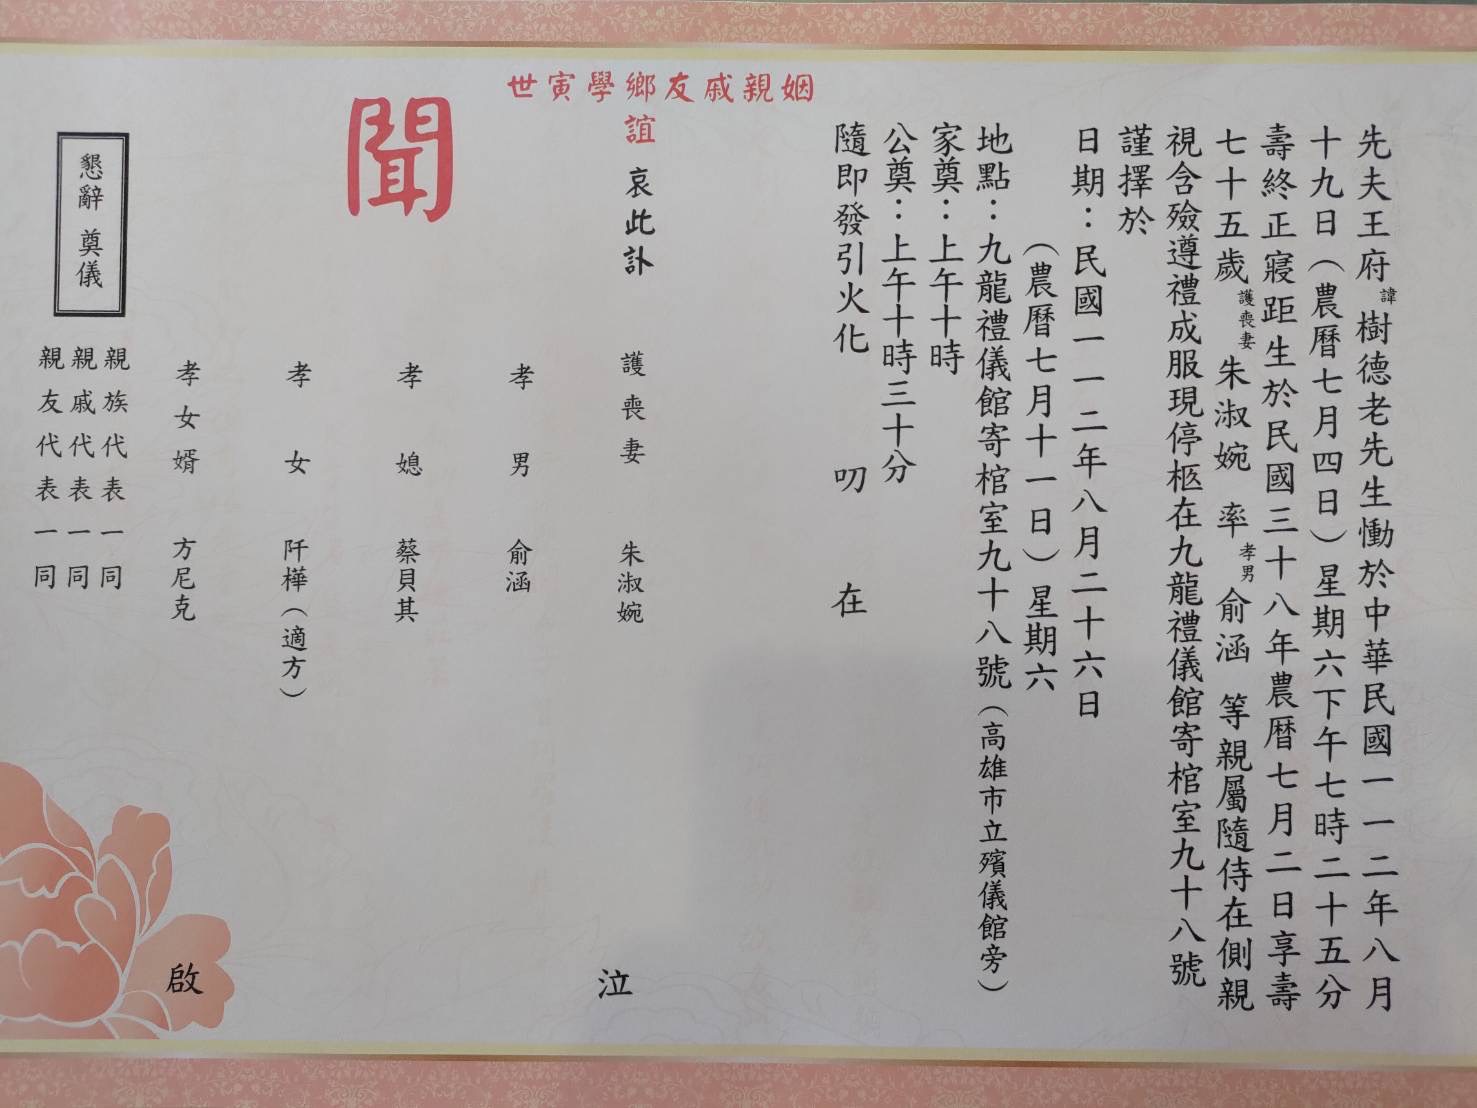 先夫王府諱樹德老先生慟於中華民國一一二年八月
十九日（農曆七月四日）星期六下午七時二十五分
壽終正寢距生於民國三十八年農曆七月二日享壽
七十五歲護喪妻朱淑婉 率孝男俞涵 等親屬隨侍在側親
視含殮遵禮成服現停柩在九龍禮儀館寄棺室九十八號
謹擇於
日期：民國一一二年八月二十六日
（農曆七月十一日）星期六
地點：九龍禮儀館寄棺室九十八號（高雄市立殯儀館旁）
家奠：上午十時
公奠：上午十時三十分
隨即發引火化 叨 在
世寅學鄉友戚親姻
誼 哀此訃
聞
護喪妻 朱淑婉
泣
孝男 俞涵
孝媳 蔡貝其
孝女 阡樺（適方）
孝女婿 方尼克
啟
親族代表一同
親戚代表一同
親友代表一同
懇辭 奠儀